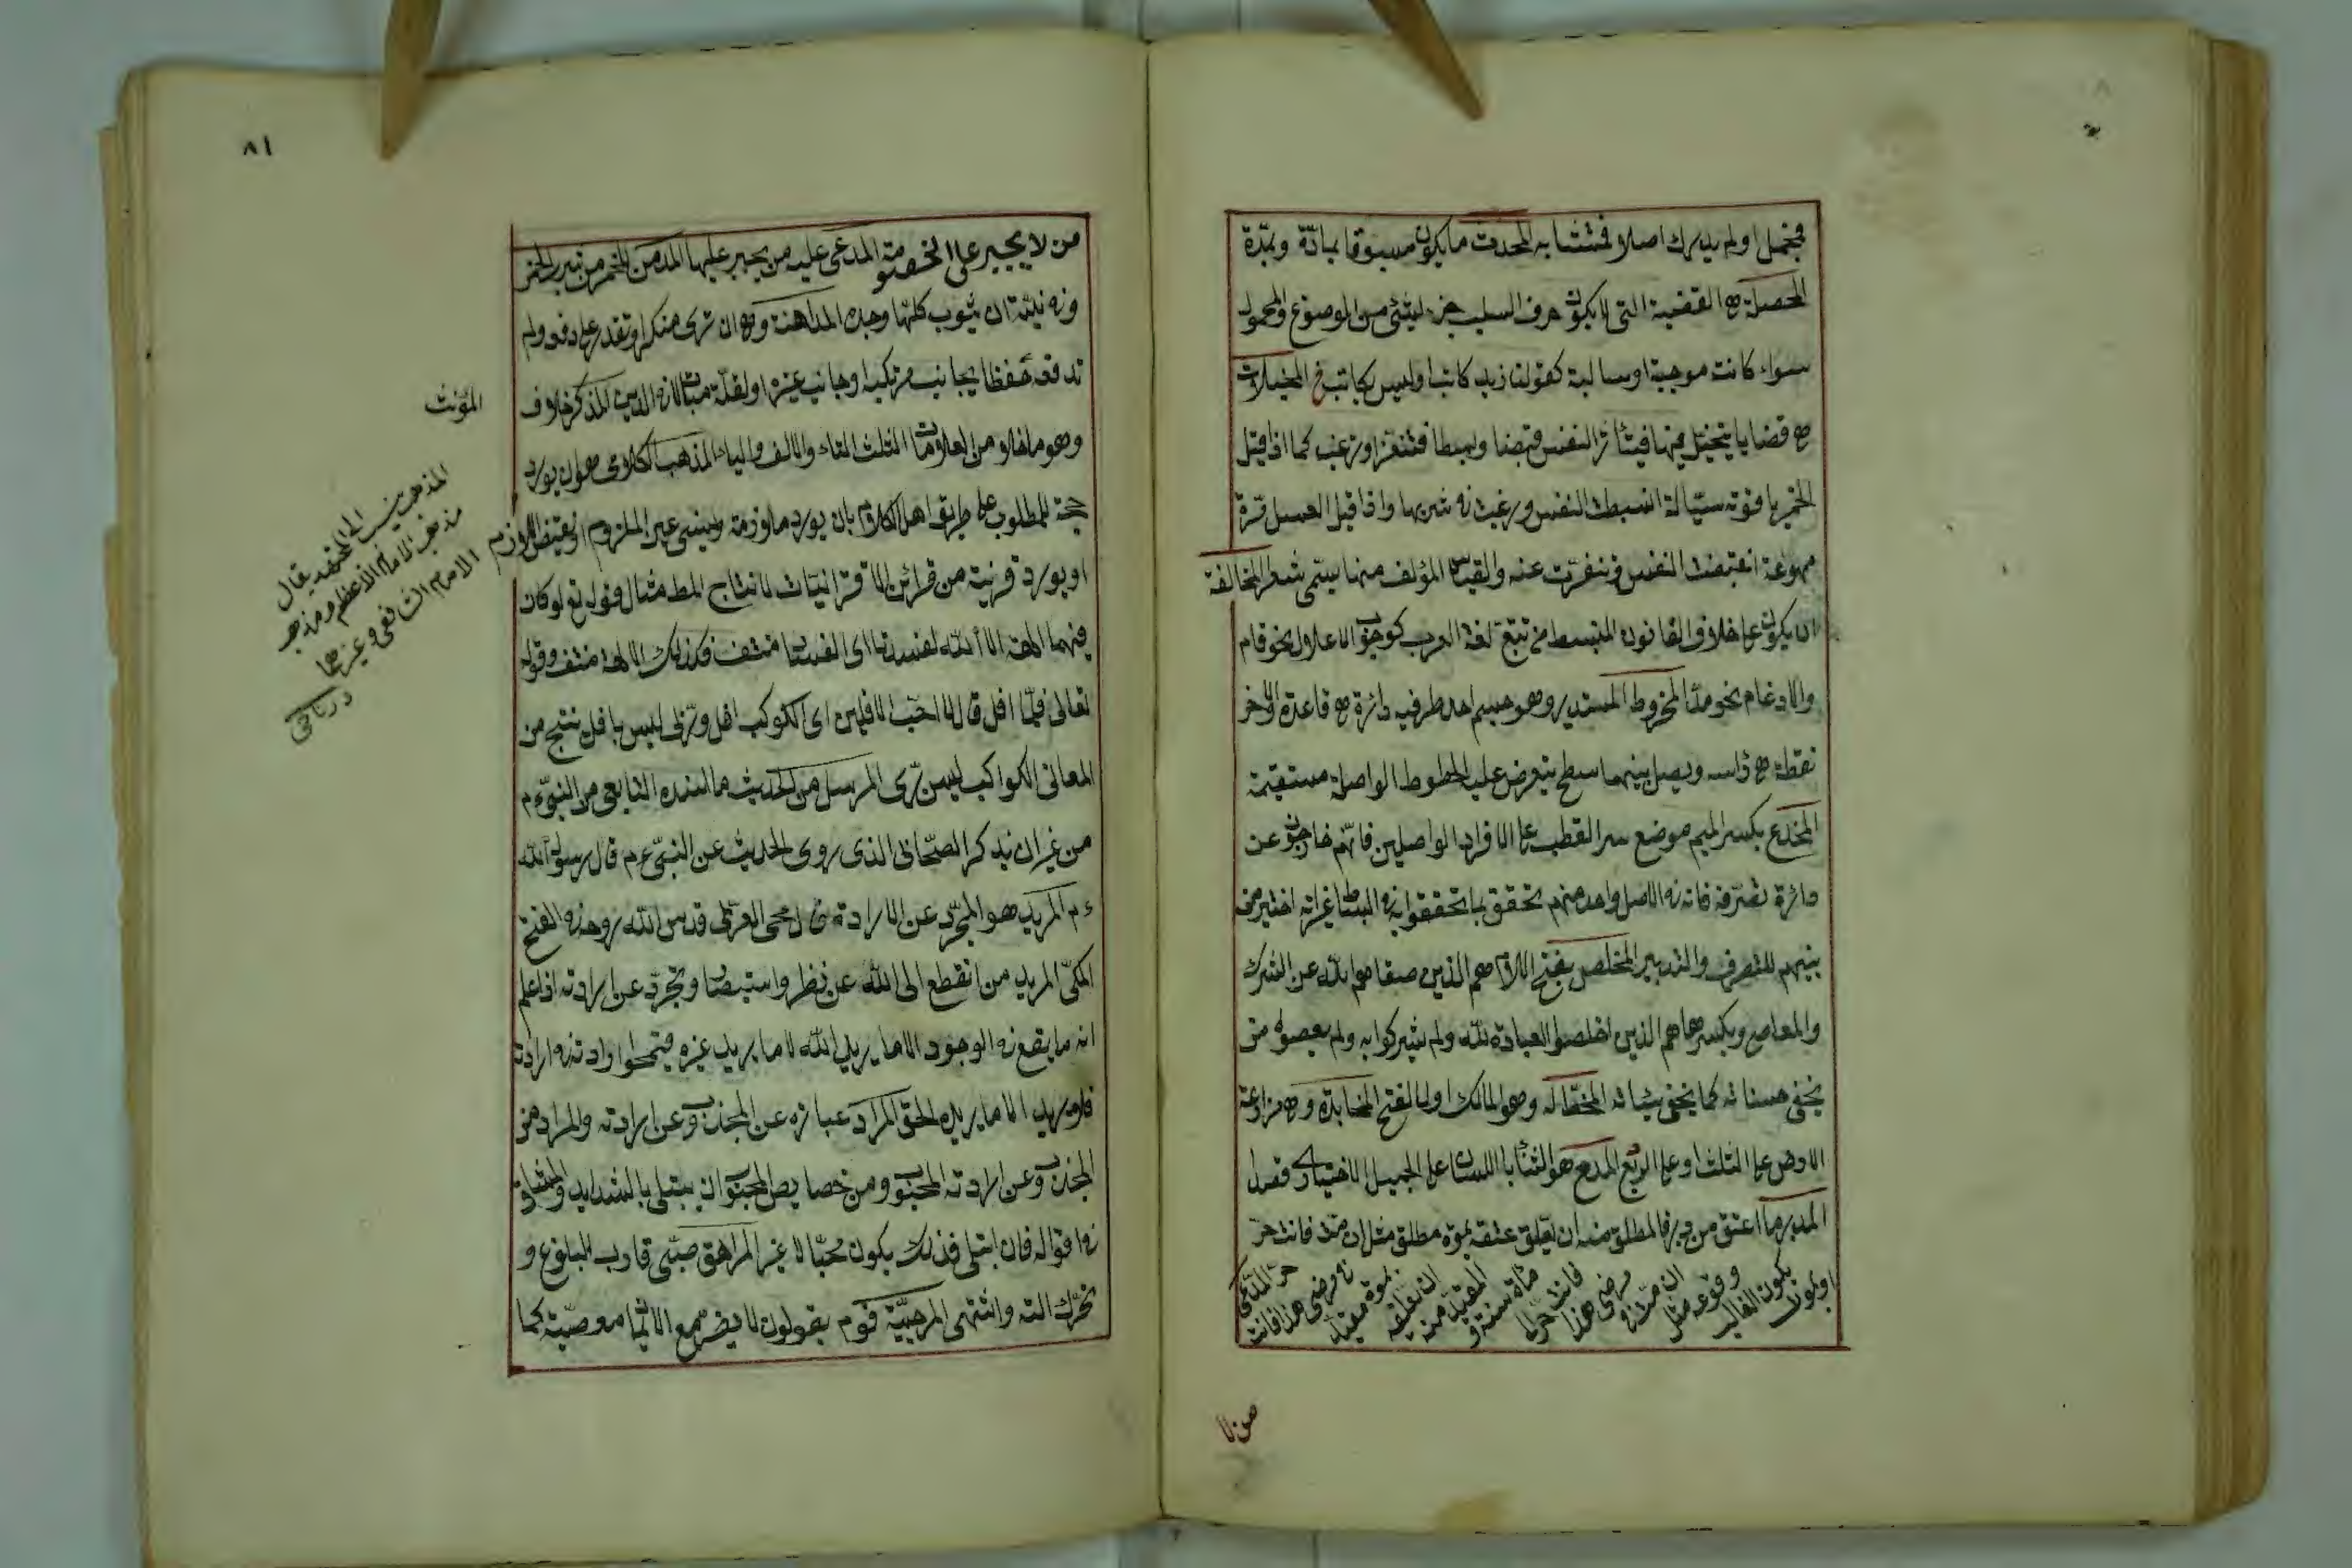 فمجمل او لم يدرك اصلا فمتشابه المحدث ما يكون مسبوقا بمادّة وبمدّة
المحصلة هى القضية التى لا يكون حرف السلب جزء لشئ من الموضوع والمحمول
سواء كانت موجبة او سالبة كقولنا زيد كاتب او ليس بكاتب المخيلات
هى قضايا يتخيل فيها فيتأثر النفس قبضا وبسطا فتنفر او ترغب كما اذا قيل
الخمر ياقوته سيّالة انبسطت النفس ورغبت فى شربها واذا قيل العسل مرّة
مهوعة انقبضت النفس وتنفرت عنه والقياس المؤلف منها يسمّى شعرا المخالفة
ان يكون على خلاف القانون المنبسط من تتبع لغة العرب كوجوب الاعلال نحو قام
والادغام نحو مدّ المخروط المستدير وهو جسم احد طرفيه دائرة هى قاعدة والاخر
نقطة هى رأسه ويصل بينهما سطح يتعرض عليه الخطوط الواصلة مستقيمة
المخدع بكسر الميم موضع سر القطب على الافراد الواصلين فانهم خارجون عن
دائرة تصرّفه فانه فى الاصل واحد منهم تحقق بما تحققوا به فى البساط غير انه اختير من
بينهم للتصرف والتدبير المخلص بفتح اللام هم الذين صفاهم الله عن الشرك
والمعاصى وبكسرها هم الذين اخلصوا العبادة لله ولم يشركوا به ولم يعصوه من
يخفى حسناته كما يخفى سيئاته المخطّ له وهو المالك اولا بالفتح المخابرة وهى مزارعة
الارض على الثلث او على الربع المدح هو الثناء باللسان على الجميل الاختيارى قصدا
المدبر ما اعتق من دبر فالمطلق منه ان يعلق عتقه بموته مطلق مثل ان متّ فانت حرّ
او بموت يكون الغالب وقوعه مثل ان متّ فى مرضى هذا فانت حرّ المقيد منه ان يعلقه بموت مقيد فى مرضى هذا فانت حرّ المدّعى
من لا
٨١
من لا يجبر على الخصومة المدعى عليه من يجبر عليها المدمن للخمر من شرب الخمر
وفى نيّته ان يشرب كلما وجده المداهنة وهى ان ترى منكرا وتقدر على دفعه ولم
تدفعه حفظا لجانب مرتكبه او جانب غيره او لقلّة مبالاة فى الدين المذكر خلاف
المؤنث
وهو ما خلا من العلامات الثلث التاء والالف والياء المذهب الكلامى هو ان يورد
حجّة للمطلوب على طريق اهل الكلام بان يورد ملازمة ويستثنى عين الملزوم او نقيض اللازم
او يورد قرينة من قرائن الاقترانيات لانتاج المط مثال قوله تع لو كان
فيهما الهة الا الله لفسدتا اى الفساد منتف فكذلك الالهة منتف وقوله
تعالى فلمّا افل قال لا احبّ الافلين اى الكوكب افل وربّى ليس بافل ينتج من
المعانى الكواكب ليس بربّى المرسل من الحديث ما اسنده التابعى من النبىّ ءم
من غير ان يذكر الصحابى الذى روى الحديث عن النبىّ ءم قال رسول الله
ءم المريد هو المجرّد عن الارادة قال محى العربى قدس الله روحه فى الفتح
المكىّ المريد من انقطع الى الله عن نظر واستبصار وتجرّد عن ارادته اذا علم
انه ما يقع فى الوجود الا ما يريد الله لا ما يريد غيره فيمحوا ارادته فى ارادته
فلا يريد الا ما يريده الحق المراد عبارة عن المجذوب عن ارادته والمراد من
المجذوب عن ارادته المحبوب ومن خصايص المحبوب ان يبتلى بالشدايد والمشاق
فى احواله فان ابتلى فذلك يكون محبّا لا غير المراهق صبّى قارب البلوغ و
تحرّك الته واشتهى المرجئيّة قوم يقولون لا يضرّ مع الايمان معصيّة كما
المذهب
يقال
مذهب الامام الاعظم ومذهب
الامام الشافعى وغيرها